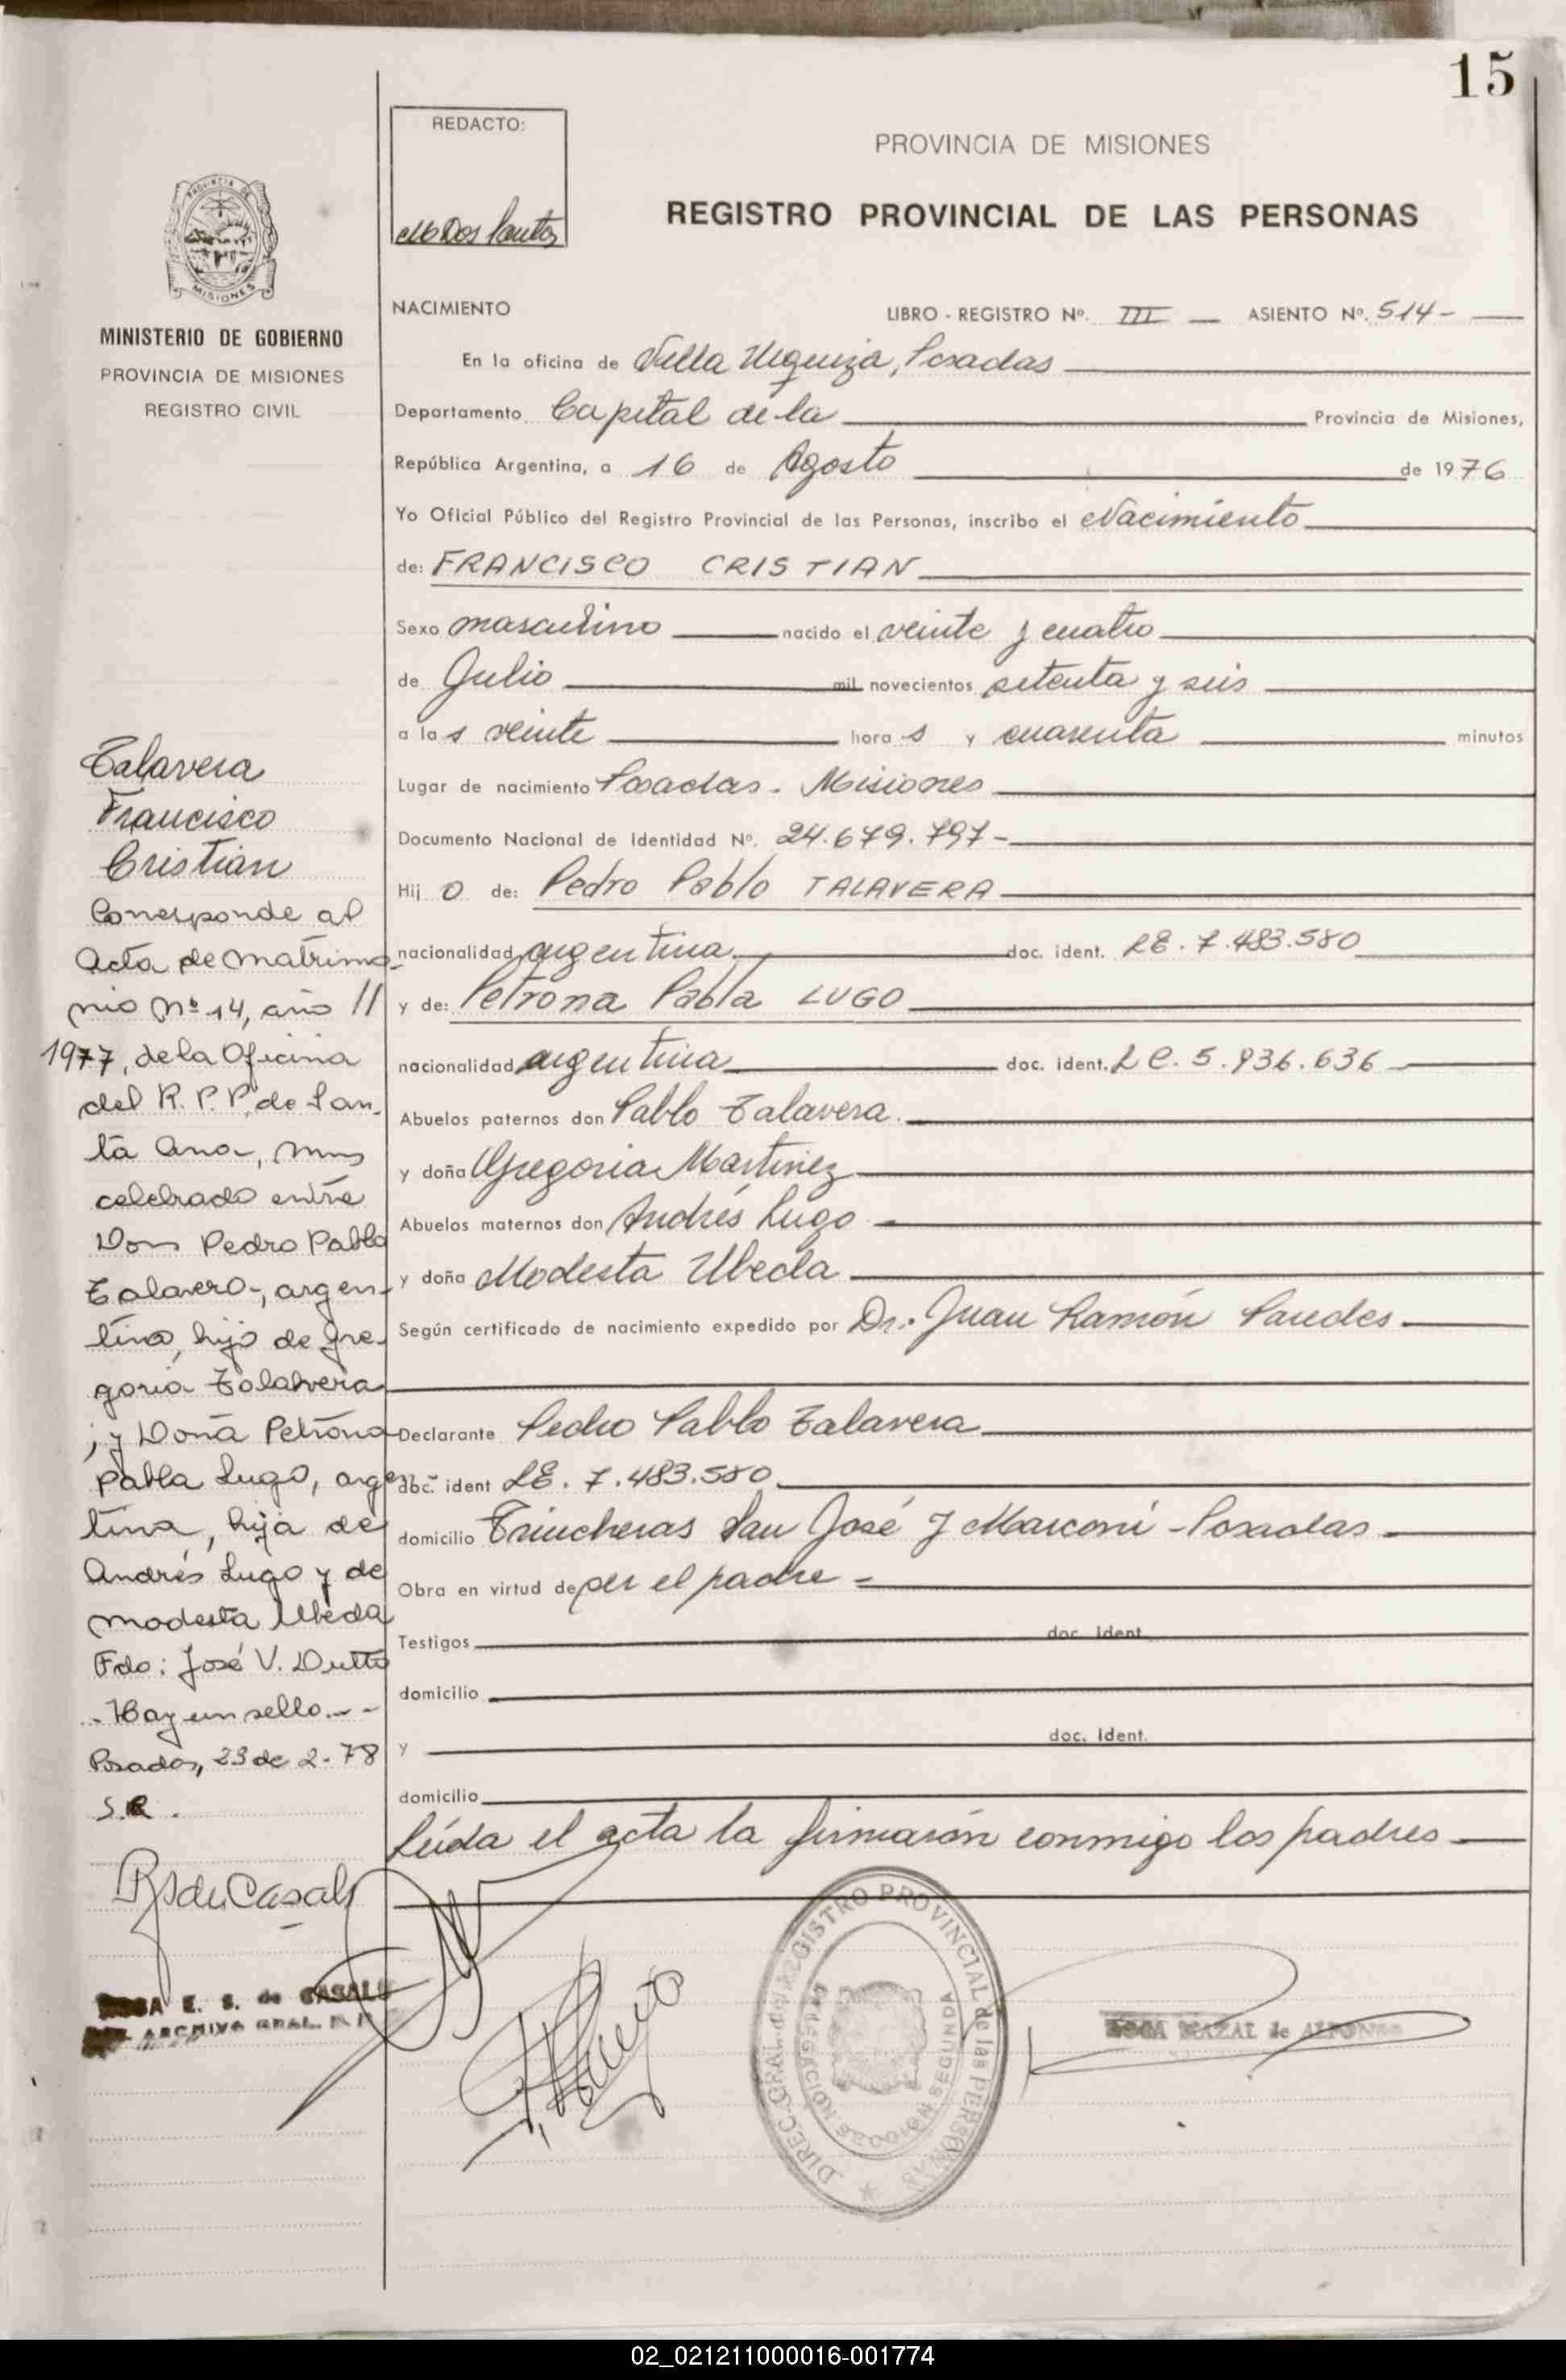 15
REDACTO:
PROVINCIA DE MISIONES
REGISTRO PROVINCIAL DE LAS PERSONAS
MISIONES
MINISTERIO DE GOBIERNO
PROVINCIA DE MISIONES
REGISTRO CIVIL
NACIMIENTO LIBRO - REGISTRO Nº. III ASIENTO Nº. 514-
En la oficina de Villa Urquiza, Posadas
Departamento Capital de la Provincia de Misiones,
República Argentina, a 16 de Agosto de 1976
Yo Oficial Público del Registro Provincial de las Personas, inscribo el Nacimiento
de: FRANCISCO CRISTIAN
Sexo masculino nacido el veinte y cuatro
de Julio mil novecientos setenta y seis
a las veinte horas y cuarenta minutos
Lugar de nacimiento Posadas - Misiones
Documento Nacional de Identidad Nº. 24.679.797-
Hijo de: Pedro Pablo TALAVERA
nacionalidad argentina doc. ident. LE. 7.483.580
y de: Petrona Pabla LUGO
nacionalidad argentina doc. ident. LC. 5.936.636
Abuelos paternos don Pablo Talavera
y doña Gregoria Martinez
Abuelos maternos don Andrés Lugo
y doña Modesta Ubeda
Según certificado de nacimiento expedido por Dr. Juan Ramón Paredes
Declarante Pedro Pablo Talavera
doc. ident LE. 7.483.580
domicilio Trincheras San José y Marconi - Posadas
Obra en virtud de ser el padre -
Testigos doc. ident.
domicilio
y doc. ident.
domicilio
Leída el acta la firmarón conmigo los padres
Talavera
Francisco
Cristian
Corresponde al
Acta de Matrimo-
nio Nº 14, año //
1977, de la Oficina
del R. P. P. de San-
ta Ana,
celebrado entre
Don Pedro Pablo
Talavera, argen-
tino, hijo de Gre-
goria Talavera
; y Doña Petrona
Pabla Lugo, argen-
tina, hija de
Andrés Lugo y de
Modesta Ubeda
Fdo: José V. Dutto
- Hay un sello. - -
Posadas, 23 de 2-78
S.R.
R S de Casals
ROSA E. S. de CASALS
ARCHIVO GRAL.
DIREC. GRAL. del REGISTRO PROVINCIAL de las PERSONAS
DELEGACION SECCION SEGUNDA
ROSA MAZAL de ALFONSO
02_021211000016-001774